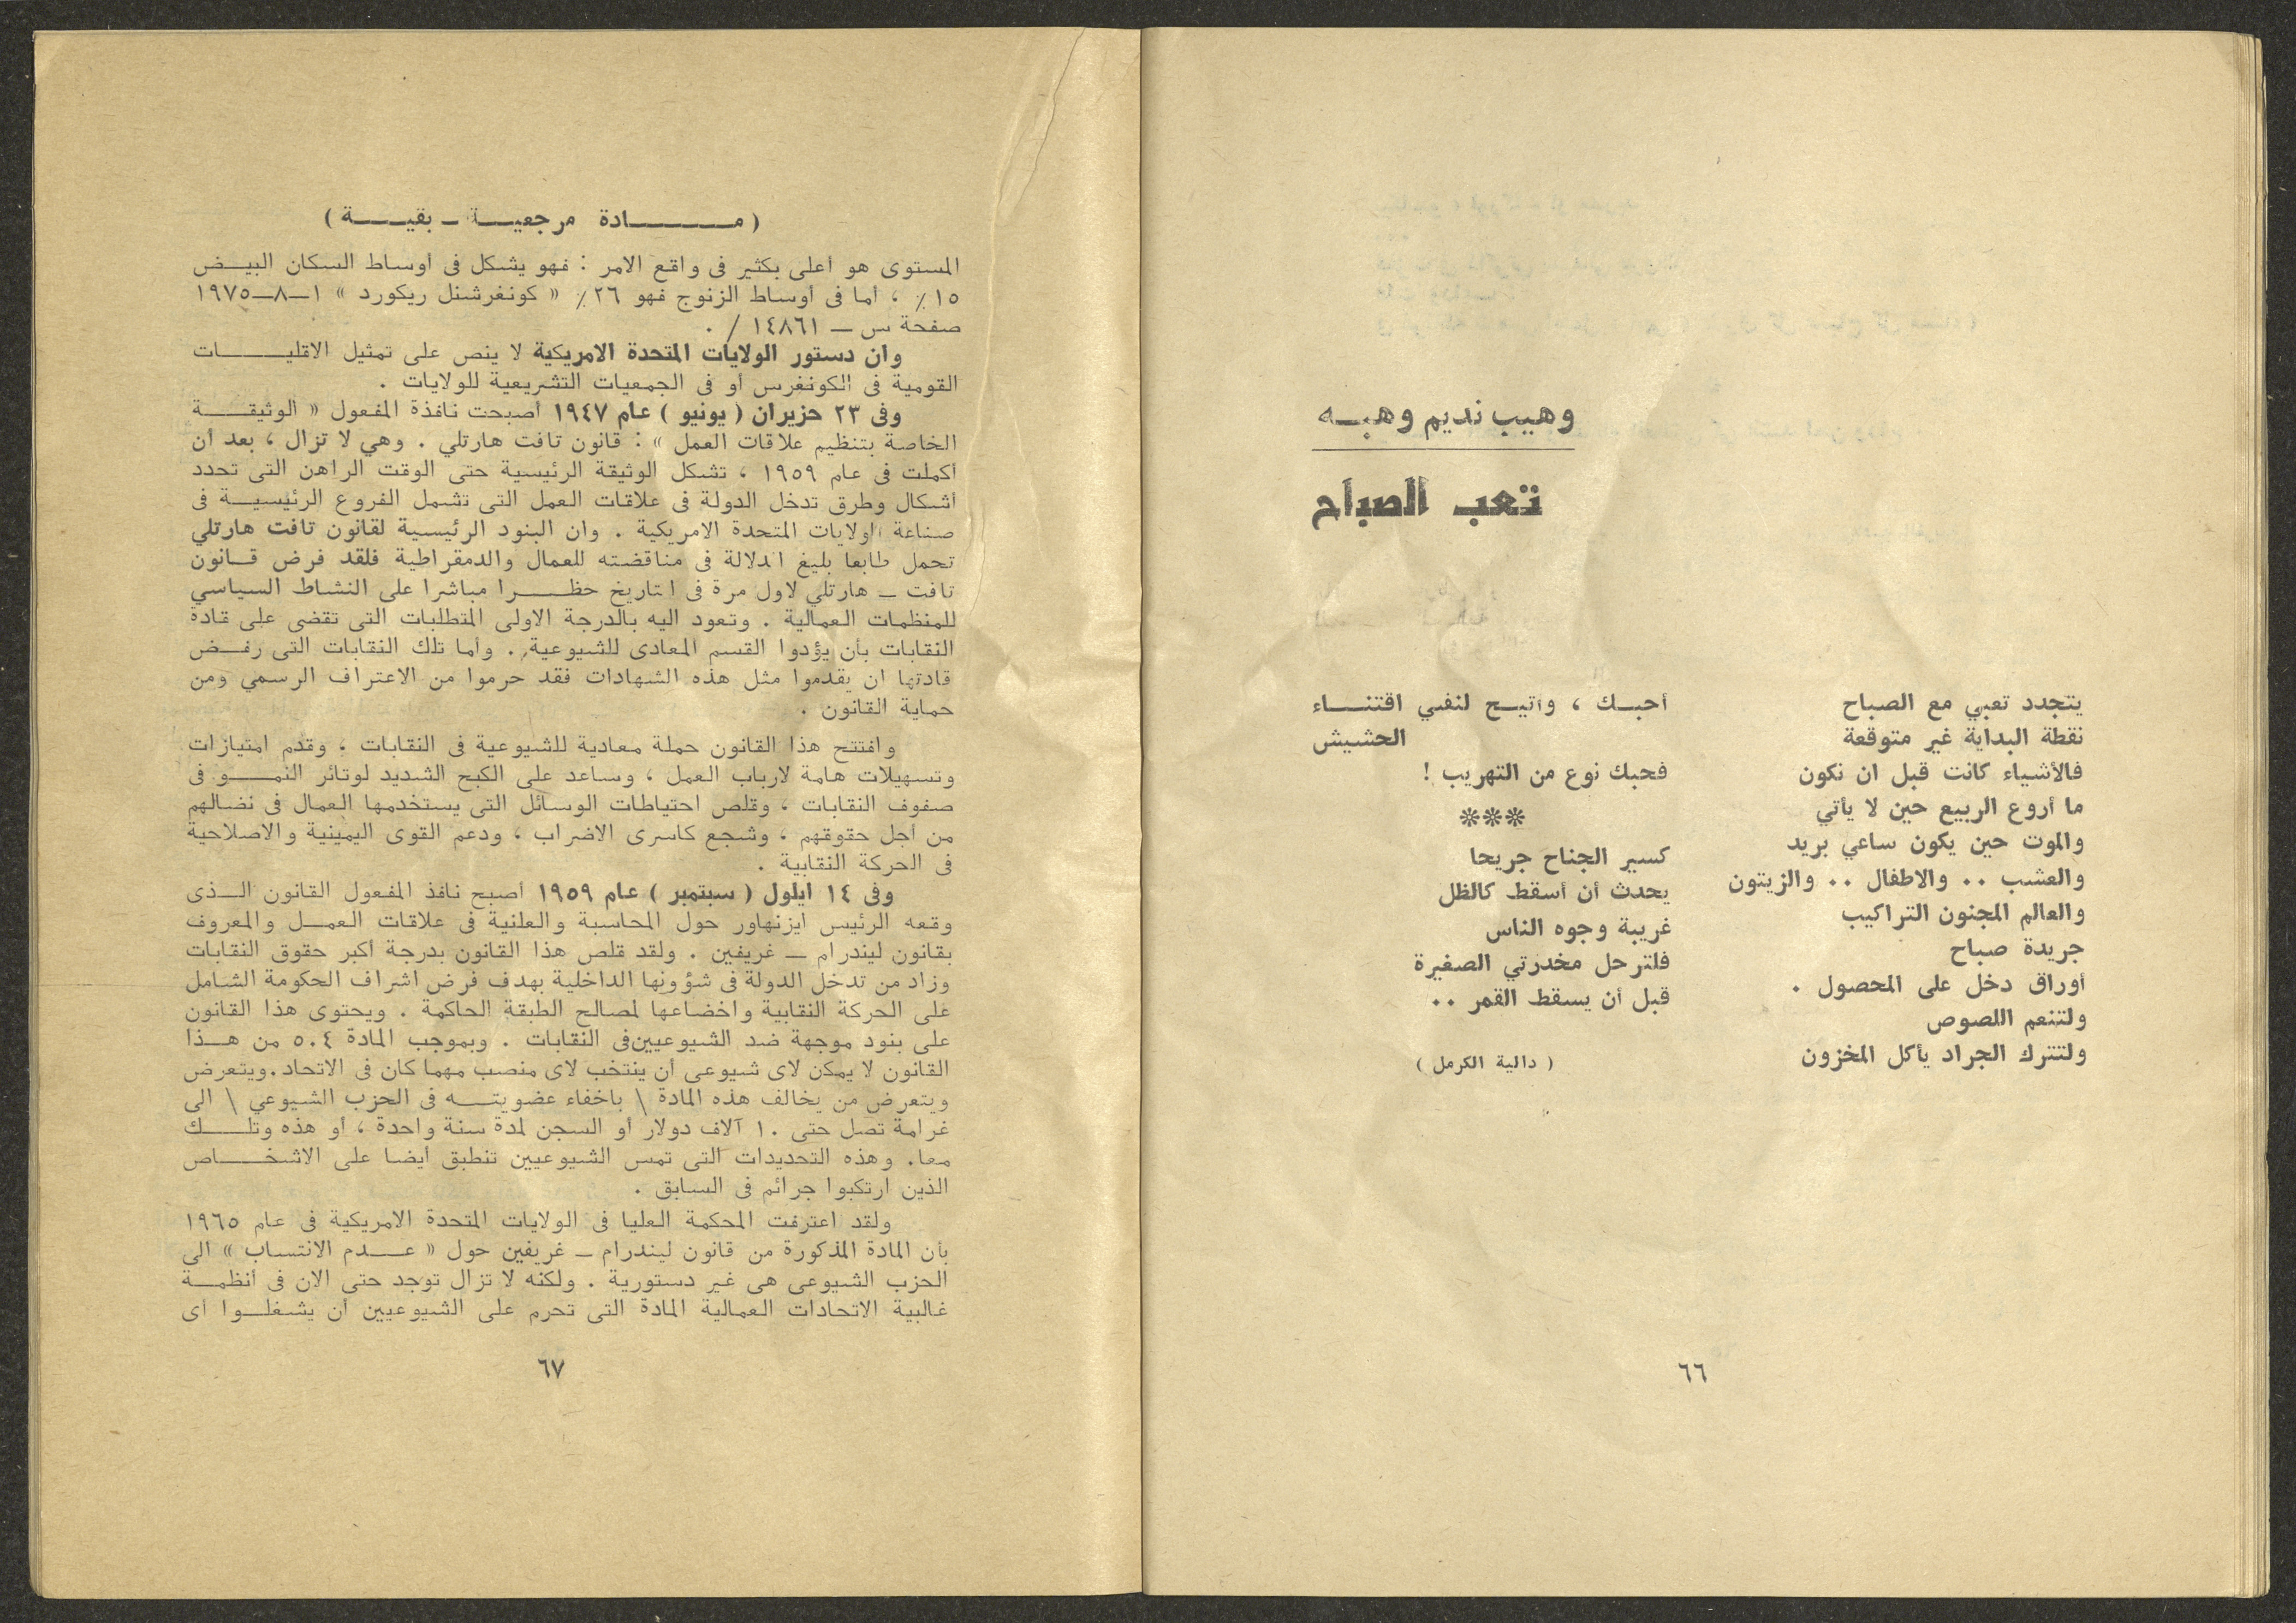 وهيب نديم وهبـــه
تعب الصباح
يتجدد تعبي مع الصباح
نقطة البداية غير متوقعة
فالأشياء كانت قبل ان نكون
ما أروع الربيع حين لا يأتي
والموت حين يكون ساعي بريد
والعشب .. والاطفال .. والزيتون
والعالم المجنون التراكيب
جريدة صباح
أوراق دخل على المحصول .
ولتنعم اللصوص
ولتترك الجراد يأكل المخزون
أحبـك ، وأتيـح لنفسي اقتنــاء
الحشيش
فحبك نوع من التهريب !
***
كسير الجناح جريحا
يحدث أن أسقط كالظل
غريبة وجوه الناس
فلترحل مخدرتي الصغيرة
قبل أن يسقط القمر ..
( دالية الكرمل )
٦٦
( مـــــــادة مرجعيـــة ــ بقيـــة )
المستوى هو أعلى بكثير فى واقع الامر : فهو يشكل فى أوساط السكان البيــض
١٥٪ ، أما فى أوساط الزنوج فهو ٢٦٪ « كونغرشنل ريكورد » ١ــ٨ــ١٩٧٥
صفحة س ــ ١٤٨٦١ / .
وان دستور الولايات المتحدة الامريكية لا ينص على تمثيل الاقليـــات
القومية فى الكونغرس أو فى الجمعيات التشريعية للولايات .
وفى ٢٣ حزيران ( يونيو ) عام ١٩٤٧ أصبحت نافذة المفعول « الوثيقـــة
الخاصة بتنظيم علاقات العمل » : قانون تافت هارتلي . وهي لا تزال ، بعد أن
أكملت فى عام ١٩٥٩ ، تشكل الوثيقة الرئيسية حتى الوقت الراهن التى تحدد
أشكال وطرق تدخل الدولة فى علاقات العمل التى تشمل الفروع الرئيسيـــة فى
صناعة الولايات المتحدة الامريكية . وان البنود الرئيسية لقانون تافت هارتلي
تحمل طابعا بليغ الدلالة فى مناقضته للعمال والدمقراطية فلقد فرض قــانون
تافت ــ هارتلي لاول مرة فى التاريخ حظـــرا مباشرا على النشاط السياسي
للمنظمات العمالية . وتعود اليه بالدرجة الاولى المتطلبات التى تقضى على قادة
النقابات بأن يؤدوا القسم المعادى للشيوعية . وأما تلك النقابات التى رفــض
قادتها ان يقدموا مثل هذه الشهادات فقد حرموا من الاعتراف الرسمي ومن
حماية القانون .
وافتتح هذا القانون حملة معادية للشيوعية فى النقابات ، وقدم امتيازات
وتسهيلات هامة لارباب العمل ، وساعد على الكبح الشديد لوتائر النمـــو فى
صفوف النقابات ، وقلص احتياطات الوسائل التى يستخدمها العمال فى نضالهم
من أجل حقوقهم ، وشجع كاسرى الاضراب ، ودعم القوى اليمينية والاصلاحية
فى الحركة النقابية .
وفى ١٤ ايلول ( سبتمبر ) عام ١٩٥٩ أصبح نافذ المفعول القانون الــذى
وقعه الرئيس ايزنهاور حول المحاسبة والعلنية فى علاقات العمــل والمعروف
بقانون ليندرام ــ غريفين . ولقد قلص هذا القانون بدرجة أكبر حقوق النقابات
وزاد من تدخل الدولة فى شؤونها الداخلية بهدف فرض اشراف الحكومة الشامل
على الحركة النقابية واخضاعها لمصالح الطبقة الحاكمة . ويحتوى هذا القانون
على بنود موجهة ضد الشيوعيين فى النقابات . وبموجب المادة ٥٠٤ من هــذا
القانون لا يمكن لاى شيوعى ان ينتخب لاى منصب مهما كان فى الاتحاد . ويتعرض
ويتعرض من يخالف هذه المادة \ باخفاء عضويتـــه فى الحزب الشيوعي \ الى
غرامة تصل حتى ١٠ آلاف دولار أو السجن لمدة سنة واحدة ، أو هذه وتلـــك
معا . وهذه التحديدات التى تمس الشيوعيين تنطبق أيضا على الاشخـــاص
الذين ارتكبوا جرائم فى السابق .
ولقد اعترفت المحكمة العليا فى الولايات المتحدة الامريكية فى عام ١٩٦٥
بأن المادة المذكورة من قانون ليندرام ــ غريفين حول « عــدم الانتساب » الى
الحزب الشيوعى هى غير دستورية . ولكنه لا تزال توجد حتى الان فى أنظمــة
غالبية الاتحادات العمالية المادة التى تحرم على الشيوعيين أن يشغلــوا أى
٦٧